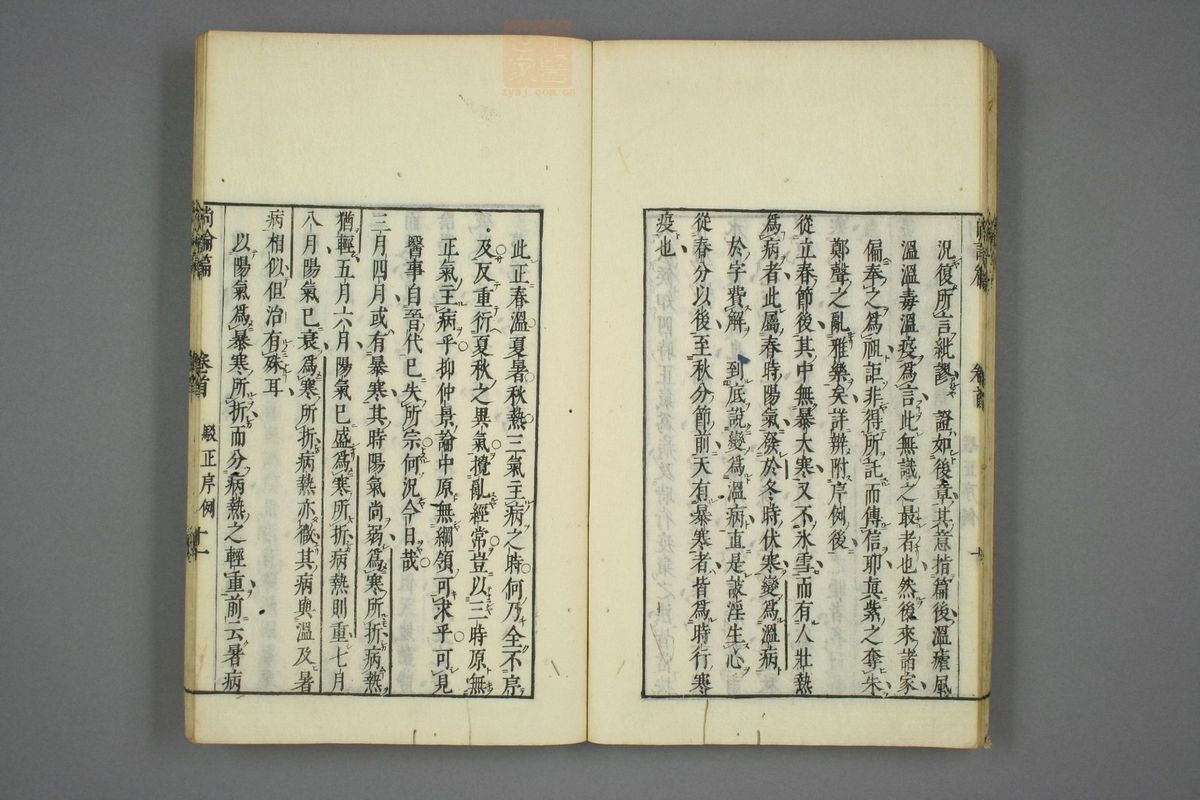 況復所言紕謬 證如後章其意措篇後溫瘧風
溫溫毒溫疫爲言此無識之最者也然後來諸家
偏奉之爲祖詎非得所託而傳信耶眞紫之奪朱
鄭聲之亂雅樂矣詳辨附序例後
從立春節後其中無暴大寒又不氷雪而有人壯熱
爲病者此屬春時陽氣發於冬時伏寒變爲溫病
於字費解 到底說變爲溫病直是詖淫生心
從春分以後至秋分節前天有暴寒者皆爲時行寒
疫也
此正春溫夏暑秋熱三氣主病之時何乃全不序
及反重衍夏秋之異氣攪亂經常豈以三時原無
正氣主病乎抑仲景論中原無綱領可求乎可見
醫事自晉代已失所宗何況今日哉
三月四月或有暴寒其時陽氣尚弱爲寒所折病熱
猶輕五月六月陽氣已盛爲寒所折病熱則重七月
八月陽氣已衰爲寒所折病熱亦微其病與溫及暑
病相似但治有殊耳
以陽氣爲暴寒所折而分病熱之輕重前云暑病
尚論篇 卷首 駁正序例 十一
卷首
zysj.com.cn